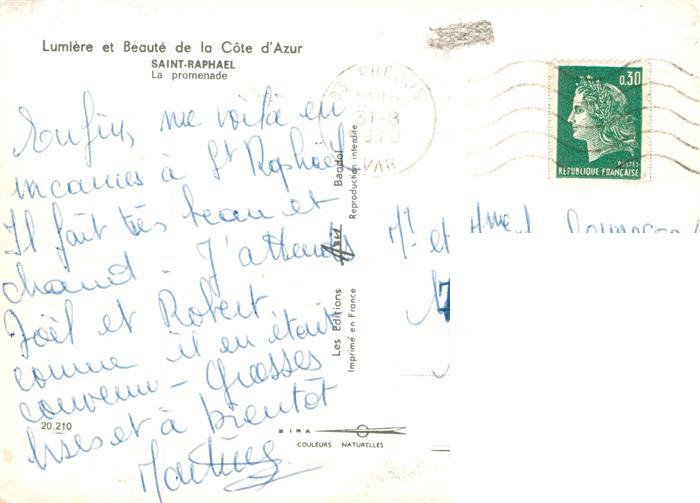 Lumière et Beauté de la Côte d'Azur
SAINT-RAPHAEL
La promenade
Enfin, me voilà en
vacances à St Raphaël
Il fait très beau et
chaud - J'attends
Joël et Robert
comme il en était
convenu - Grosses
bises et à bientôt
Martine
20.210
Les Editions Aris Bandol
Imprimé en France Reproduction interdite
SIRA
COULEURS NATURELLES
83 FREJUS
31-8
1970
VAR
0,30
POSTES
REPUBLIQUE FRANÇAISE
Mr et Mme